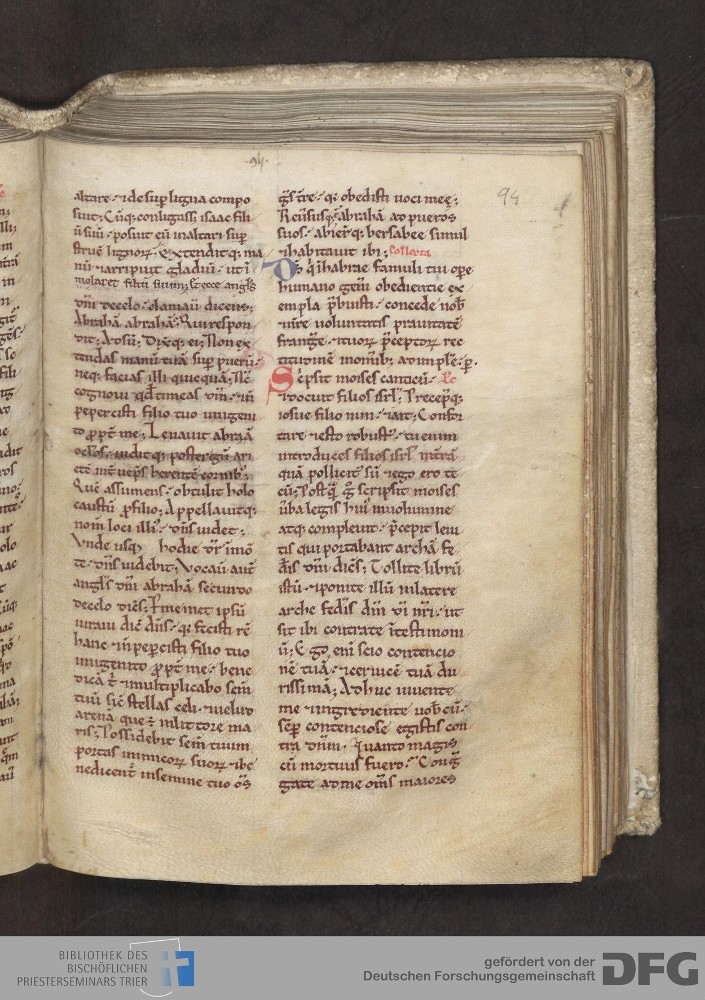 ·94·
94
altare · ⁊ desup ligna compo
suit; Cūq; colligass; isaac fili
ū suū · posuit eū in altari sup
struē lignoꝝ · Extenditq; ma
nū · ⁊ arripuit gladiū · ut ī
molaret filiū suum; Et ecce angl̄s
dn̄i de celo · clamauit dicens;
Abrahā abrahā; Qui respon
dit; Adsū; Dixq; ei; Non ex
tendas manū tuā sup puerū ·
neq; facias illi quicquā; Nc̄
cognoui qđ timeas dn̄m · ⁊ ñ
pepercisti filio tuo unigeni
to ꝓpt̄ me; Leuauit abraā
ocl̄os · uiditq; post tergū ari
etē int̄ uep̄s herentē cornib;
Quē assumens · obtulit holo
caustū ꝓ filio; Appellauitq;
nom̄ loci illi · dn̄s uidet;
Vnde usq; hodie dr̄ · ī mō
te · dn̄s uidebit; Vocau aut̄
angl̄s dn̄i abrahā secundo
de celo dices; P me met ipsū
iuraui dic̄ dn̄s · q; fecisti rē
hanc · ⁊ ñ pepercisti filio tuo
unigenito ꝓpt̄ me · bene
dicā t̄ · ⁊ multiplicabo sem̄
tuū sic̄ stellas celi · ⁊ uelud
arenā que ē in littore ma
ris; Possidebit sem̄ tuum
portas inimicoꝝ suoꝝ · ⁊ be
nedicent̄ in semine tuo om̄s
gn̄s tr̄e · q; obedisti uoci meę;
Reūsusq; abrahā ad pueros
suos · abierq; bersabee simul
⁊ habitauit ibi; Collecta
humano gen̄i obedientie ex
empla p̄buisti · concede nob̄
nr̄e uoluntatis prauitatē
franḡe · ⁊ tuoꝝ p̄ceptoꝝ rec
titudinē in om̄ib; adimplē · p̄.
Scripsit moises canticū · Lc̄
⁊ docuit filios isrl̄; Precepq;
iosue filio nun · ⁊ ait; Confor
tare ⁊ esto robust; tu enim
introduces filios isrl̄ in t̄rā
quā pollicit sū · ⁊ ego ero te
cū; Postq̄ g̊ scripsit moises
ūba legis hui in uolumine
atq; compleuit · p̄cepit leui
tis qui portabant archā fe
d̄is dn̄i dic̄s; Tollite librū
istū · ⁊ ponite illū in latere
arche fed̄is dn̄i di nr̄i · ut
sit ibi contra te ī testimoni
ū; Ego eni scio contencio
nē tuā · ⁊ ceruicē tuā du
rissimā; Adhuc uiuente
me ⁊ ingrediente uob̄cū ·
semp contenciose egistis con
tra dn̄m · Quanto magis
cū mortuus fuero; Cong̊
gate ad me om̄s maiores
BIBLIOTHEK DES
BISCHÖFLICHEN
PRIESTERSEMINARS TRIER
gefördert von der
Deutschen Forschungsgemeinschaft
DFG